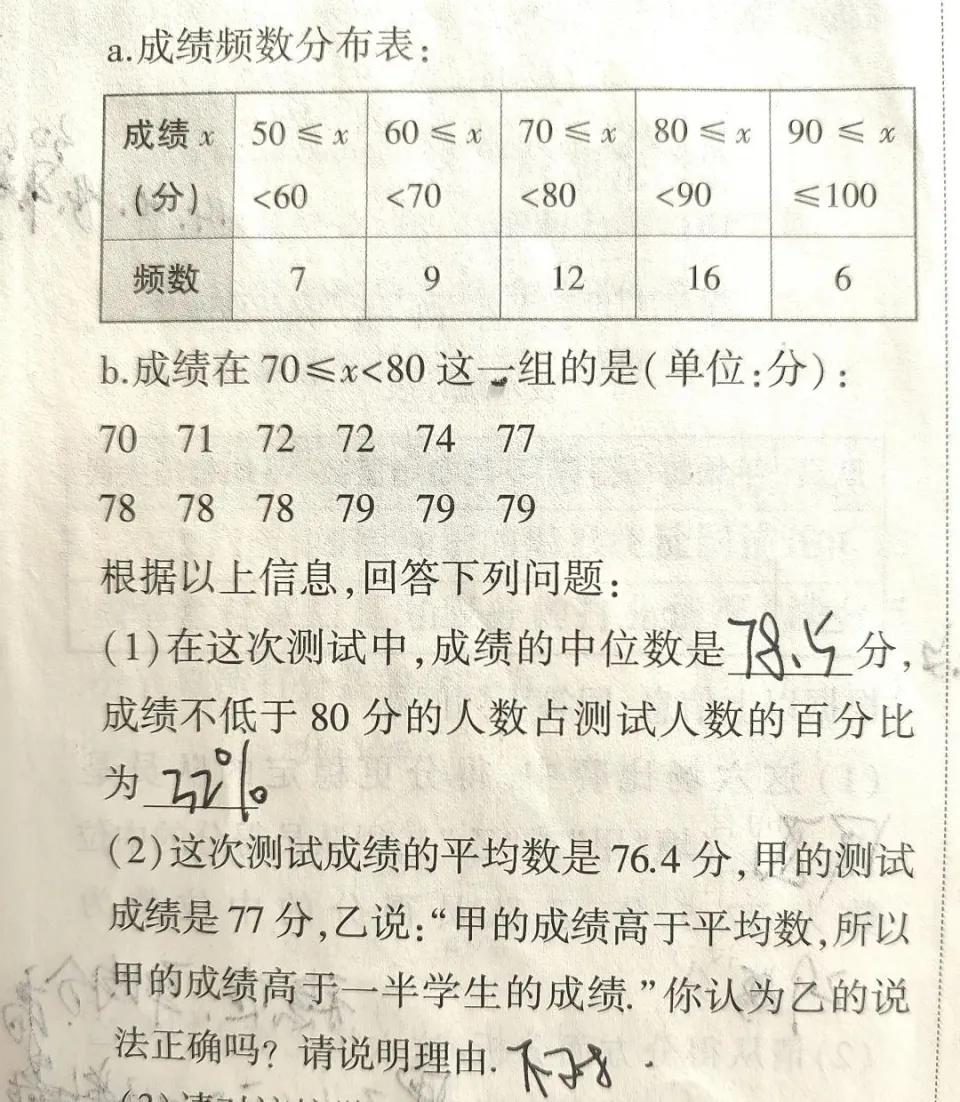 a.成绩频数分布表:
成绩 x 50 ≤ x 60 ≤ x 70 ≤ x 80 ≤ x 90 ≤ x
(分) <60 <70 <80 <90 ≤100
频数 7 9 12 16 6
b.成绩在 70≤x<80 这一组的是(单位:分):
70 71 72 72 74 77
78 78 78 79 79 79
根据以上信息,回答下列问题:
(1)在这次测试中,成绩的中位数是 78.5 分,
成绩不低于 80 分的人数占测试人数的百分比
为
(2)这次测试成绩的平均数是 76.4 分,甲的测试
成绩是 77 分,乙说:“甲的成绩高于平均数,所以
甲的成绩高于一半学生的成绩.”你认为乙的说
法正确吗? 请说明理由.